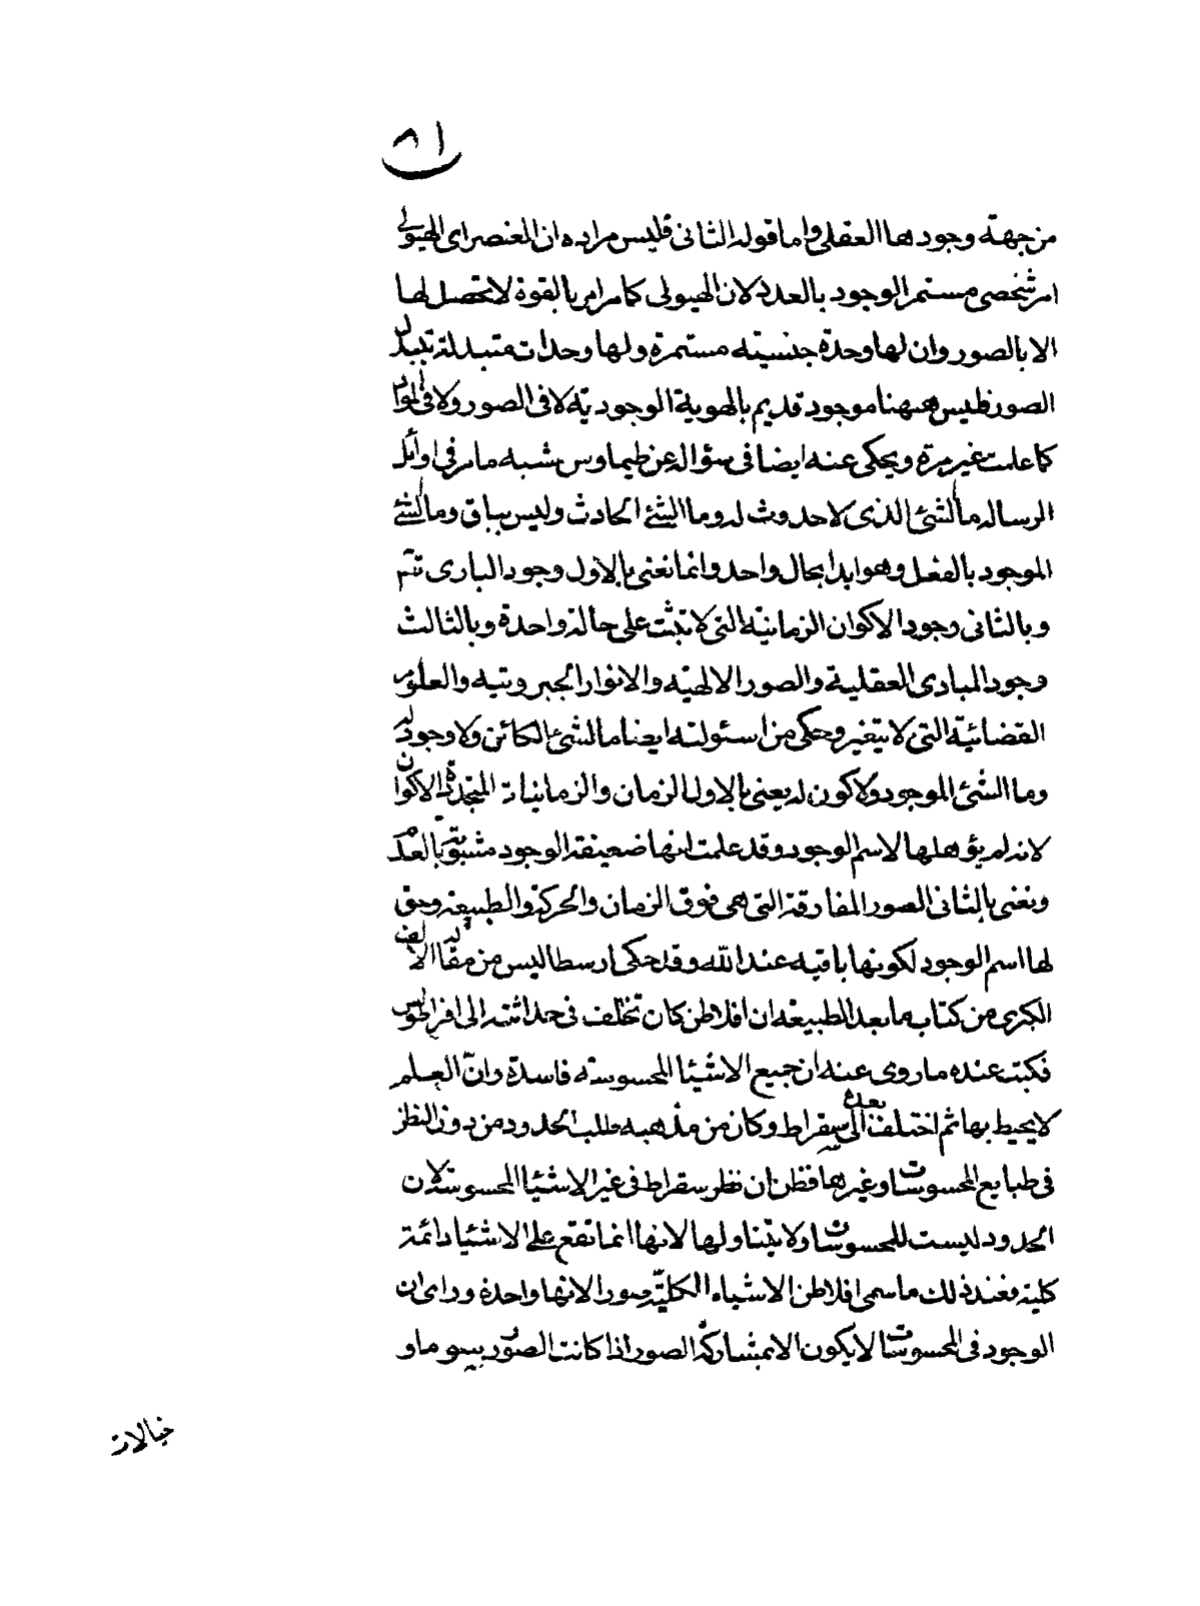 ٨١
من جهة وجودها العقلى واما قوله الثانى فليس مراده ان العنصر اى الهيولى
امر شخصى مستمر الوجود بالعدد لان الهيولى كما مر امر بالقوة لا تحصل لها
الا بالصور وان لها وحدة جنسيته مستمرة ولها وحدات متبدلة تبدل
الصور فليس هيهنا موجود قديم بالهوية الوجودية لا فى الصور ولا فى المواد
كما علمت غير مرة ويحكى عنه ايضا فى سؤاله عن طيماوس شبه ما مر فى اوائل
الرساله ما الشئ الذى لا حدوث له وما الشئ الحادث وليس بباق وما الشئ
الموجود بالفعل وهو ابدا بحال واحد وانما نعنى بالاول وجود البارى تتم
وبالثانى وجود الاكوان الزمانية التى لا تثبت على حالة واحدة وبالثالث
وجود المبادى العقلية والصور الالهيه والانوار الجبروتيه والعلوم
القضائية التى لا يتغير وحكى من اسئولته ايضا ما الشئ الكائن ولا وجود له
وما الشئ الموجود ولا كون له يعنى بالاول الزمان والزمانيات المتجددة الاكوان
لانه لم يؤهلها لاسم الوجود وقد علمت انها ضعيفة الوجود مشبوبة بالعدم
ونعنى بالثانى الصور المفارقة التى هى فوق الزمان والحركة والطبيعه وحق
لها اسم الوجود لكونها باقيه عند الله وقد حكى ارسطاليس من مقاله الالف
الكبرى من كتاب ما بعد الطبيعه ان افلاطن كان تخلف فى حداثته الى افراطولس
فكتب عنده ما روى عنه ان جميع الاشيا المحسوسته فاسدة وانّ العلم
لا يحيط بها ثم اختلف بعده الى سقراط وكان من مذهبه طلب الحدود من دون النظر
فى طبايع المحسوسات وغيرها فظن ان نظر سقراط فى غير الاشيا المحسوسة لان
الحدود ليست للمحسوسات ولا يتناولها لانها انما تقع على الاشيا دائمة
كلية فعند ذلك ما سمى افلاطن الاشياء الكليّة صورا لانها واحدة وراى ان
الوجود فى المحسوسات لا يكون الا بمشاركة الصور اذا كانت الصور رسوما و
خيالات